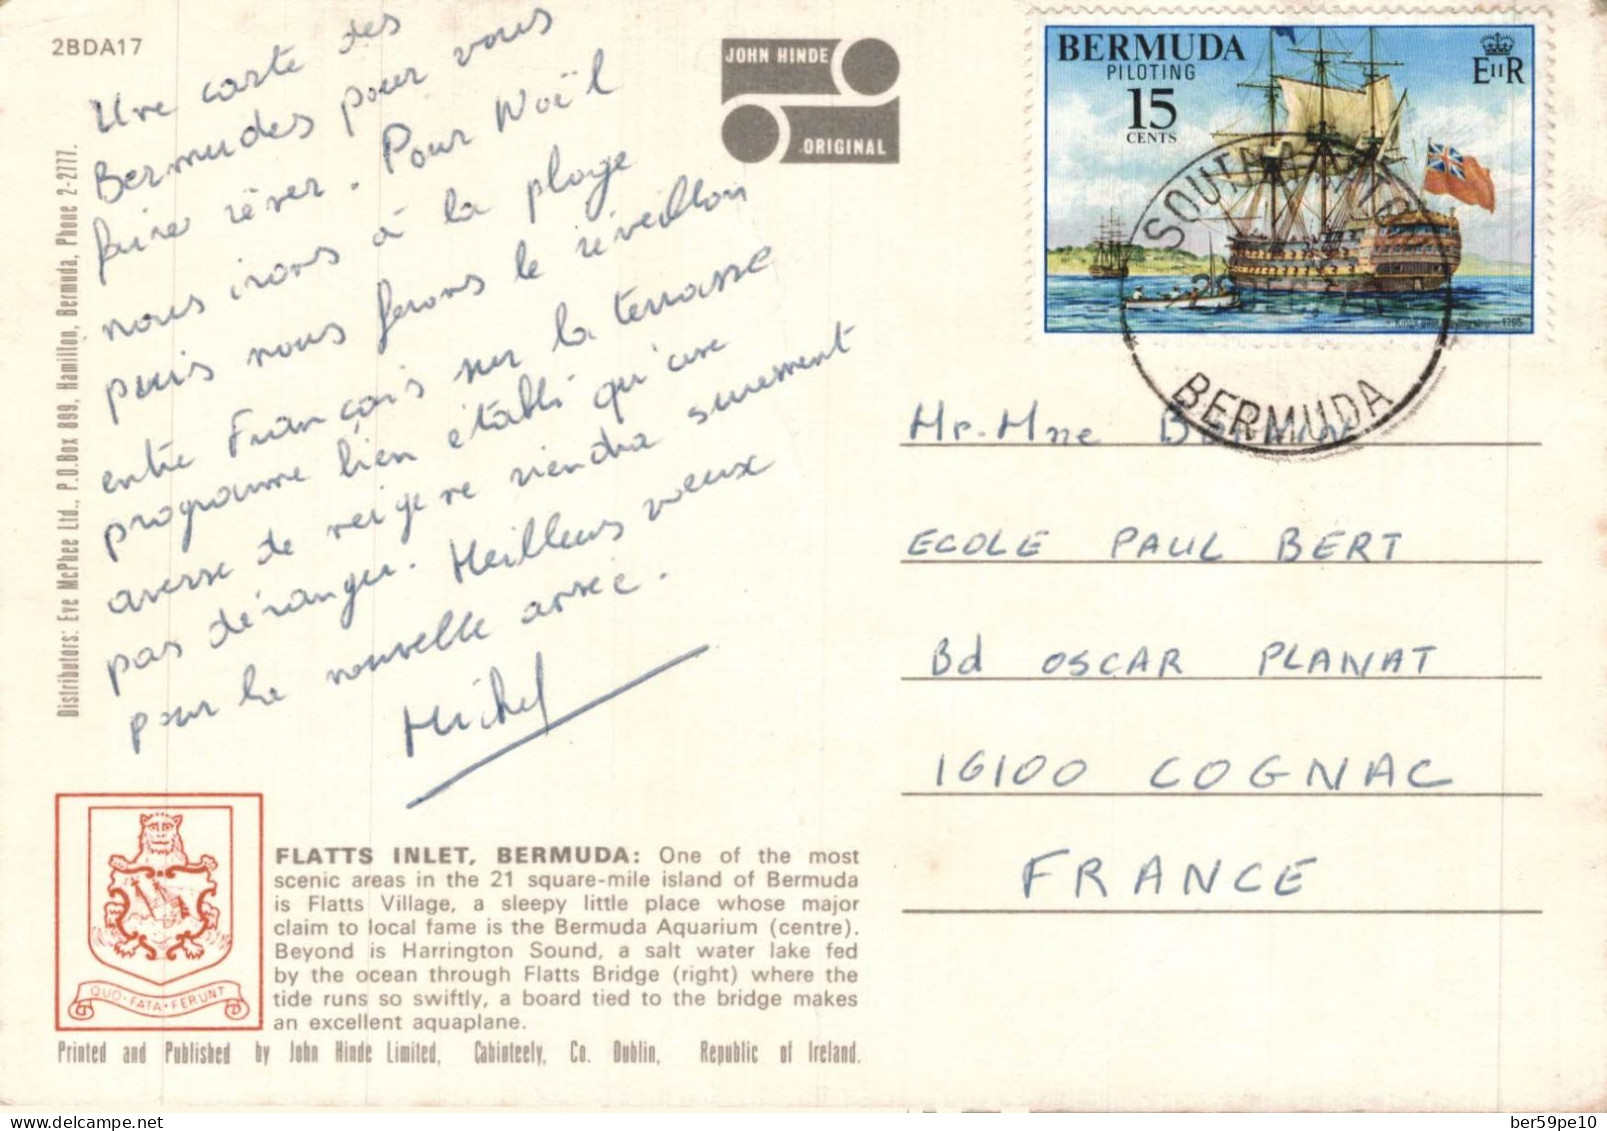 2BDA17
Une carte des
Bermudes pour vous
faire rêver. Pour Noël
nous irons à la plage
puis nous ferons le réveillon
entre Français sur la terrasse
programme bien établi qu'une
averse de neige ne viendra surement
pas déranger. Meilleurs voeux
pour la nouvelle année.
Michel
Distributors: Eve McPhee Ltd., P.O.Box 899, Hamilton, Bermuda, Phone 2-2777.
JOHN HINDE
ORIGINAL
BERMUDA
PILOTING
15
CENTS
EIIR
1795
SOUTHAMPTON
BERMUDA
Mr. Mme
ECOLE PAUL BERT
Bd OSCAR PLANAT
16100 COGNAC
FRANCE
QUO·FATA·FERUNT
FLATTS INLET, BERMUDA: One of the most
scenic areas in the 21 square-mile island of Bermuda
is Flatts Village, a sleepy little place whose major
claim to local fame is the Bermuda Aquarium (centre).
Beyond is Harrington Sound, a salt water lake fed
by the ocean through Flatts Bridge (right) where the
tide runs so swiftly, a board tied to the bridge makes
an excellent aquaplane.
Printed and Published by John Hinde Limited, Cabinteely, Co. Dublin, Republic of Ireland.
ber59pe10